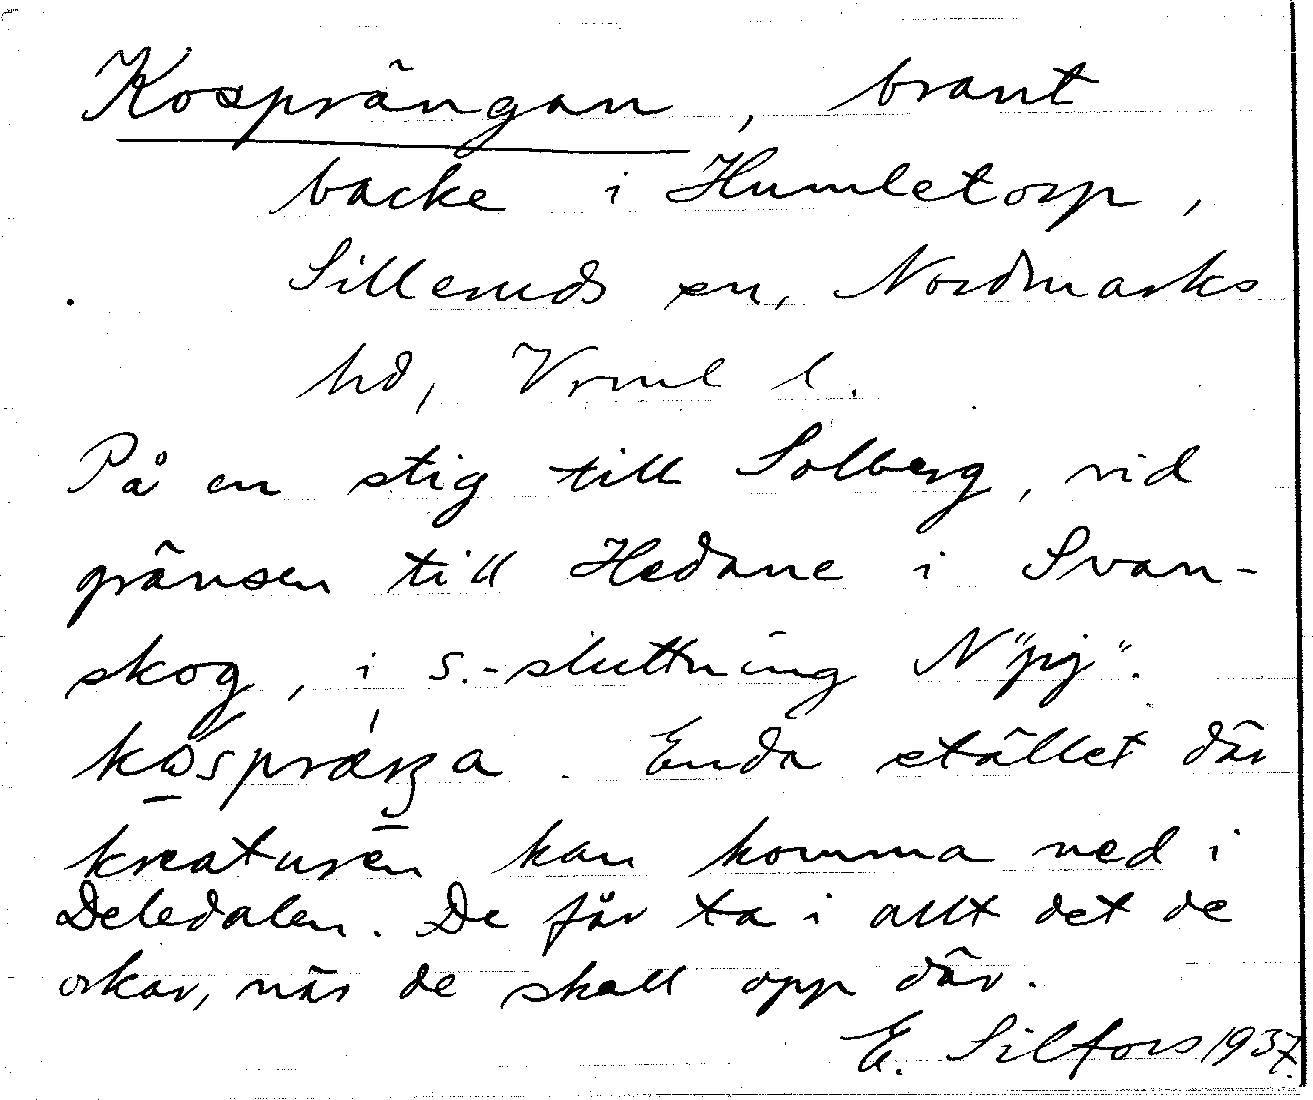 Kosprängan, brant
backe i Humletorp,
Silleruds sn, Nordmarks
hd, Vrml l.
På en stig till Solberg, vid
gränsen till Hedane i Svan-
skog, i s.-sluttning N "pig".
Enda stället där
kreaturen kan komma ned i
Deledalen. De får ta i allt det de
orkar, när de skall opp där.
E. Silfors 1937.